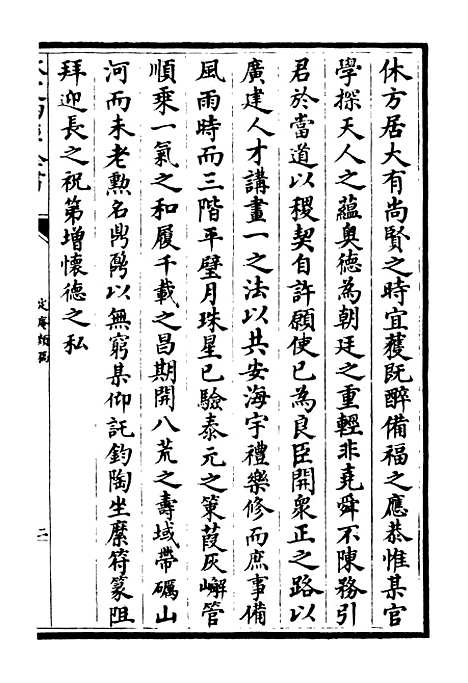 休方居大有尚賢之時宜獲旣醉備福之應恭惟某官
學探天人之蘊奥德為朝廷之重輕非堯舜不陳務引
君於當道以稷契自許願使已為良臣開衆正之路以
廣建人才講畫一之法以共安海宇禮樂修而庶事備
風雨時而三階平璧月珠星已驗泰元之策葭灰嶰管
順乘一氣之和履千載之昌期開八荒之壽域帶礪山
河而未老勲名鼎鼐以無窮某仰託鈞陶坐縻符篆阻
拜迎長之祝第增懷德之私
定庵類稿
二